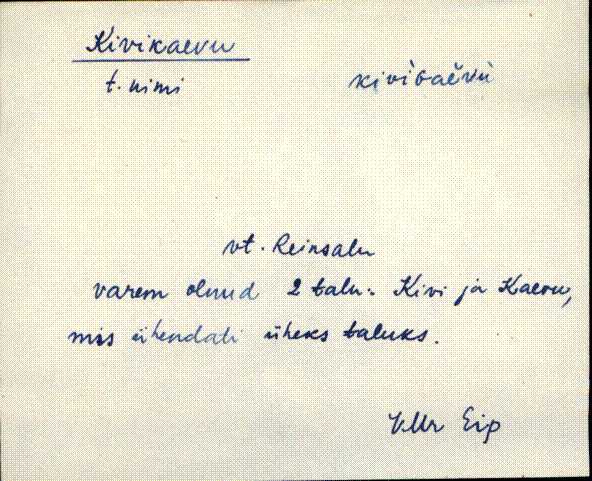 Kivikaevu
t. nimi kivìGaĕvù
vt. Reinsalu
varem olnud 2 talu: Kivi ja Kaevu,
mis ühendati üheks taluks.
VMr Eip